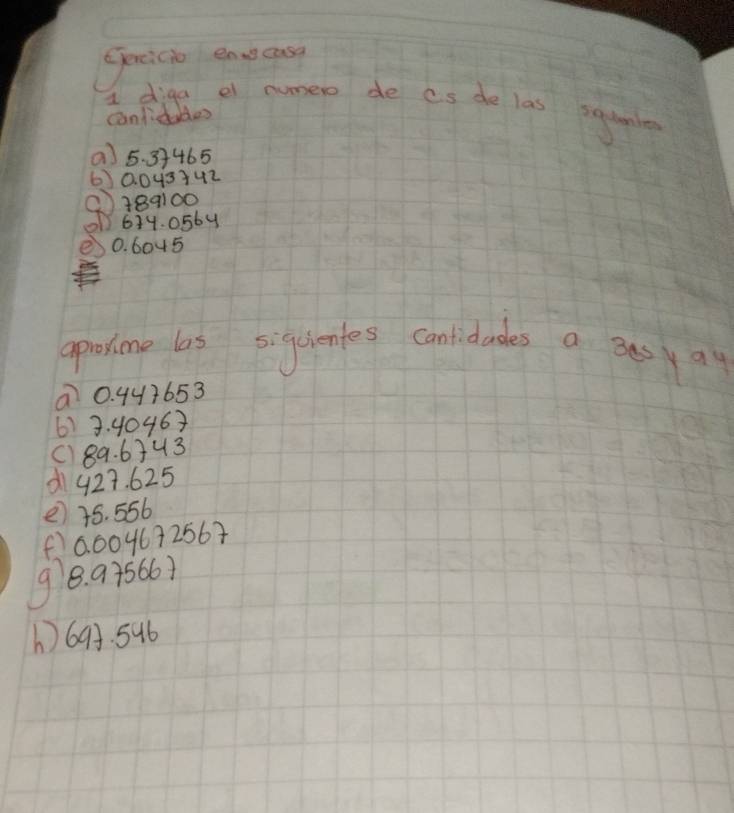 Ejercicio en casa
1 diga el numero de cs de las siguientes
cantidades
a) 5.37465
b) 0.043742
c) 789100
d) 674.0564
e) 0.6045
aproxime las siguientes cantidades a 3cs y a 4
a) 0.447653
b) 7.40467
c) 89.6743
d) 427.625
e) 75.556
f) 0.004672567
g) 8.975667
h) 697.546